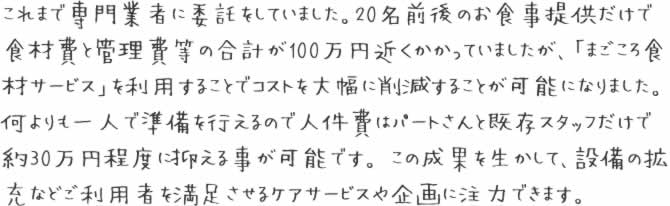 これまで専門業者に委託をしていました。20名前後のお食事提供だけで
食材費と管理費等の合計が100万円近くかかっていましたが、「まごころ食
材サービス」を利用することでコストを大幅に削減することが可能になりました。
何よりも一人で準備を行えるので人件費はパートさんと既存スタッフだけで
約30万円程度に抑える事が可能です。この成果を生かして、設備の拡
充などご利用者を満足させるケアサービスや企画に注力できます。